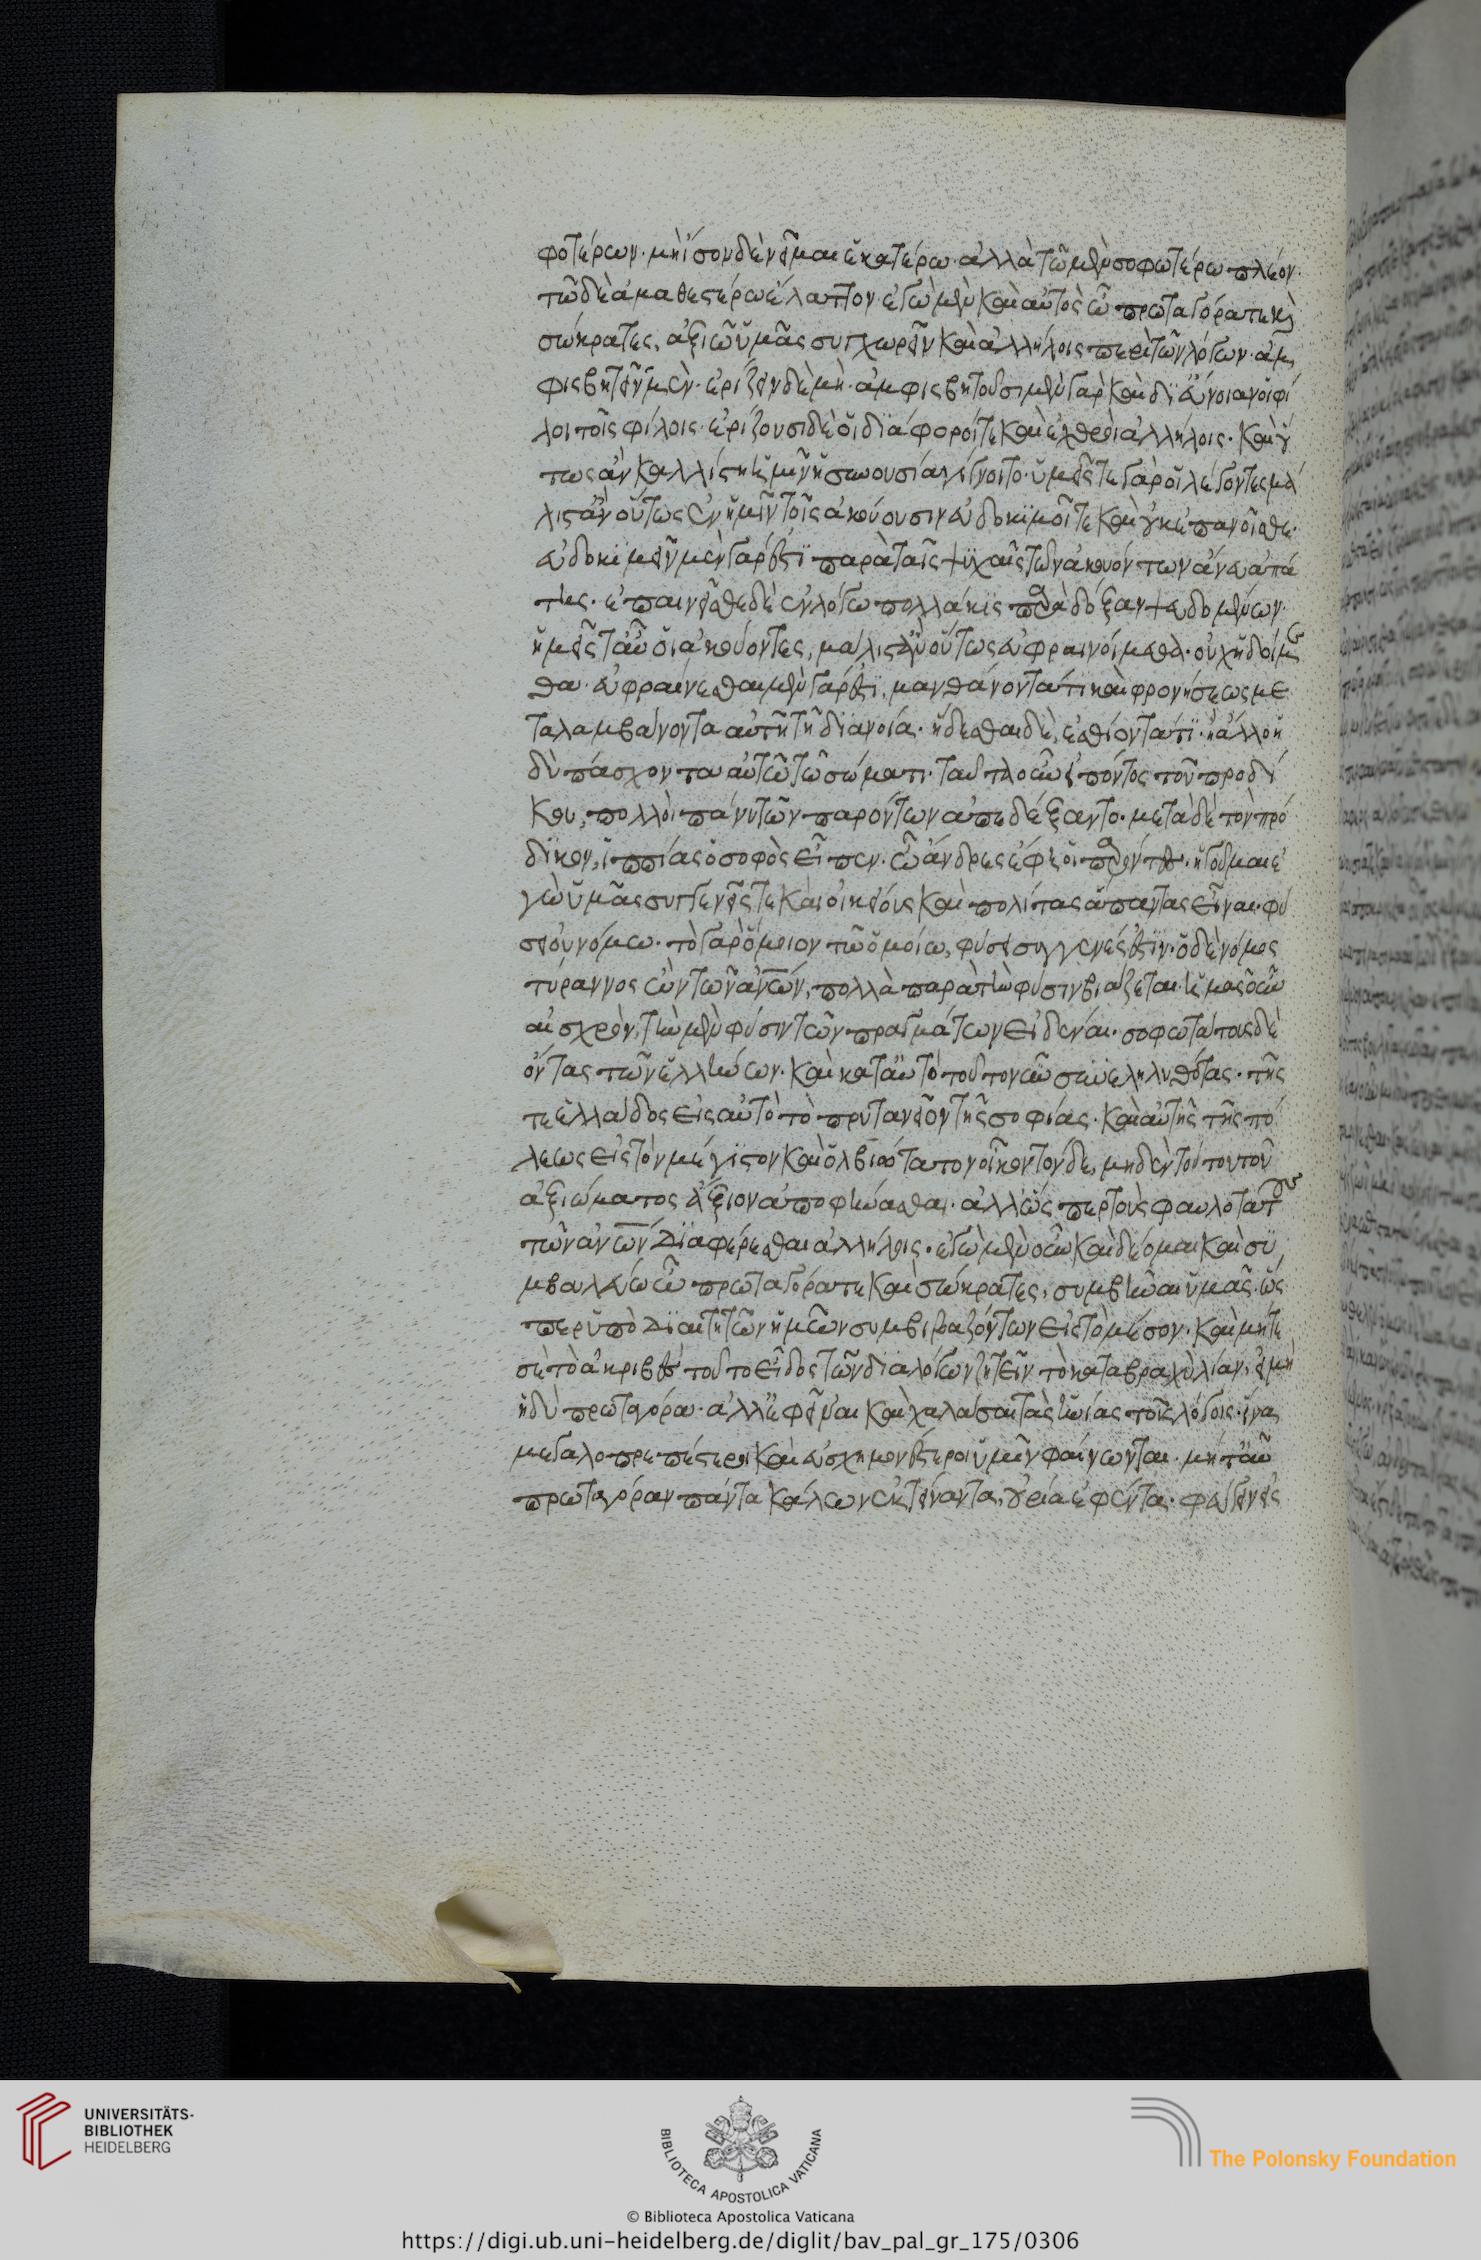 φοτέρων· μὴ ἴσον δὲ νεῖμαι ἑκατέρω· ἀλλὰ τῶ μὲν σοφωτέρω πλέον·
τῶ δὲ ἀμαθεστέρω ἔλαττον· ἐγὼ μὲν καὶ αὐτὸς ὦ πρωταγόρα τε καὶ
σώκρατες, ἀξιῶ ὑμᾶς συγχωρεῖν καὶ ἀλλήλοις περὶ τῶν λόγων· ἀμ
φισβητεῖν μὲν· ἐρίζειν δὲ μή· ἀμφισβητοῦσι μὲν γὰρ καὶ δι' εὔνοιαν οἱ φί
λοι τοῖς φίλοις· ἐρίζουσι δὲ οἱ διάφοροί τε καὶ ἐχθροὶ ἀλλήλοις· καὶ οὕ
τως ἂν καλλίστη ἡμῖν ἡ συνουσία γίγνοιτο· ὑμεῖς τε γὰρ οἱ λέγοντες μά
λιστ' ἂν οὕτως ἐν ἡμῖν τοῖς ἀκούουσιν εὐδοκιμοῖτε καὶ οὐκ ἐπαινοῖσθε·
εὐδοκιμεῖν μὲν γάρ ἐστι παρὰ ταῖς ψυχαῖς τῶν ἀκουόντων ἄνευ ἀπά
της· ἐπαινεῖσθε δὲ ἐν λόγω πολλάκις παρὰ δόξαν ψευδομένων·
ἡμεῖς τ' αὖ οἱ ἀκούοντες, μάλιστ' ἂν οὕτως εὐφραινοίμεθα· οὐχ ἡδοίμε
θα· εὐφραίνεσθαι μὲν γάρ ἐστι, μανθάνοντά τι καὶ φρονήσεως με
ταλαμβάνοντα αὐτῆ τῆ διανοία· ἥδεσθαι δὲ, ἐσθίοντά τι· ἢ ἄλλο ἡ
δὺ πάσχοντα αὐτῶ τῶ σώματι· ταῦτ' οὖν εἰπόντος τοῦ προδί
κου, πολλοὶ πάνυ τῶν παρόντων ἀπεδέξαντο· μετὰ δὲ τὸν πρό
δικον, ἱππίας ὁ σοφὸς εἶπεν· ὦ ἄνδρες ἔφη οἱ παρόντες· ἡγοῦμαι ἐ
γὼ ὑμᾶς συγγενεῖς τε καὶ οἰκείους καὶ πολίτας ἅπαντας εἶναι· φύ
σει οὐ νόμω· τὸ γὰρ ὅμοιον τῶ ὁμοίω, φύσει συγγενές ἐστιν· ὁ δὲ νόμος
τύραννος ὢν τῶν ἀνων, πολλὰ παρὰ τὴν φύσιν βιάζεται· ἡμᾶς οὖν
αἰσχρὸν, τὴν μὲν φύσιν τῶν πραγμάτων εἰδέναι· σοφωτάτους δὲ
ὄντας τῶν ἑλλήνων· καὶ κατ' αὐτὸ τοῦτο νῦν συνεληλυθότας· τῆς
τε ἑλλάδος εἰς αὐτὸ τὸ πρυτανεῖον τῆς σοφίας· καὶ αὐτῆς τῆς πό
λεως εἰς τὸν μέγιστον καὶ ὀλβιώτατον οἶκον τόνδε, μηδὲν τούτου τοῦ
ἀξιώματος ἄξιον ἀποφήνασθαι· ἀλλ' ὥσπερ τοὺς φαυλοτάτους
τῶν ἀνων διαφέρεσθαι ἀλλήλοις· ἐγὼ μὲν οὖν καὶ δέομαι καὶ συ
μβουλεύω ὦ πρωταγόρα τε καὶ σώκρατες, συμβῆναι ὑμᾶς ὥσ
περ ὑπὸ διαιτητῶν ἡμῶν συμβιβαζόντων εἰς τὸ μέσον· καὶ μήτε
σὲ τὸ ἀκριβὲς τοῦτο εἶδος τῶν διαλόγων ζητεῖν τὸ κατὰ βραχὺ λίαν, εἰ μὴ
ἡδὺ πρωταγόρα· ἀλλ' ἐφεῖναι καὶ χαλάσαι τὰς ἡνίας τοῖς λόγοις· ἵνα
μεγαλοπρεπέστεροι καὶ εὐσχημονέστεροι ὑμῖν φαίνωνται· μήτ' αὖ
πρωταγόραν πάντα κάλων ἐκτείναντα, οὐρία ἐφέντα· φεύγειν εἰς
UNIVERSITÄTS-
BIBLIOTHEK
HEIDELBERG
BIBLIOTECA APOSTOLICA VATICANA
The Polonsky Foundation
© Biblioteca Apostolica Vaticana
https://digi.ub.uni-heidelberg.de/diglit/bav_pal_gr_175/0306